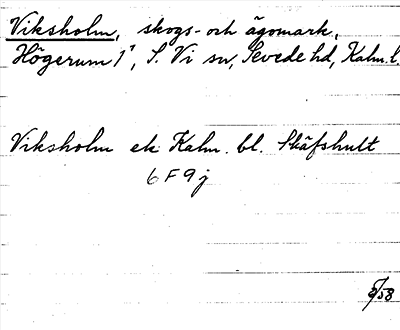 Viksholm, skogs- och ägomark,
Högerum 1¹, S. Vi sn, Sevede hd, Kalm. l.
Viksholm ek Kalm. bl. Skäfshult
6 F 9 j
/58